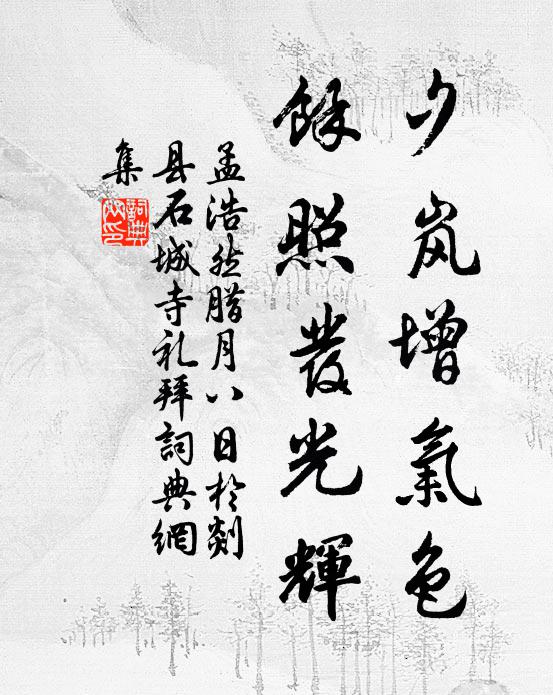 夕岚增氣色
餘照發光輝
孟浩然腊月八日於剡
县石城寺礼拜詞典網
集
詞典網印